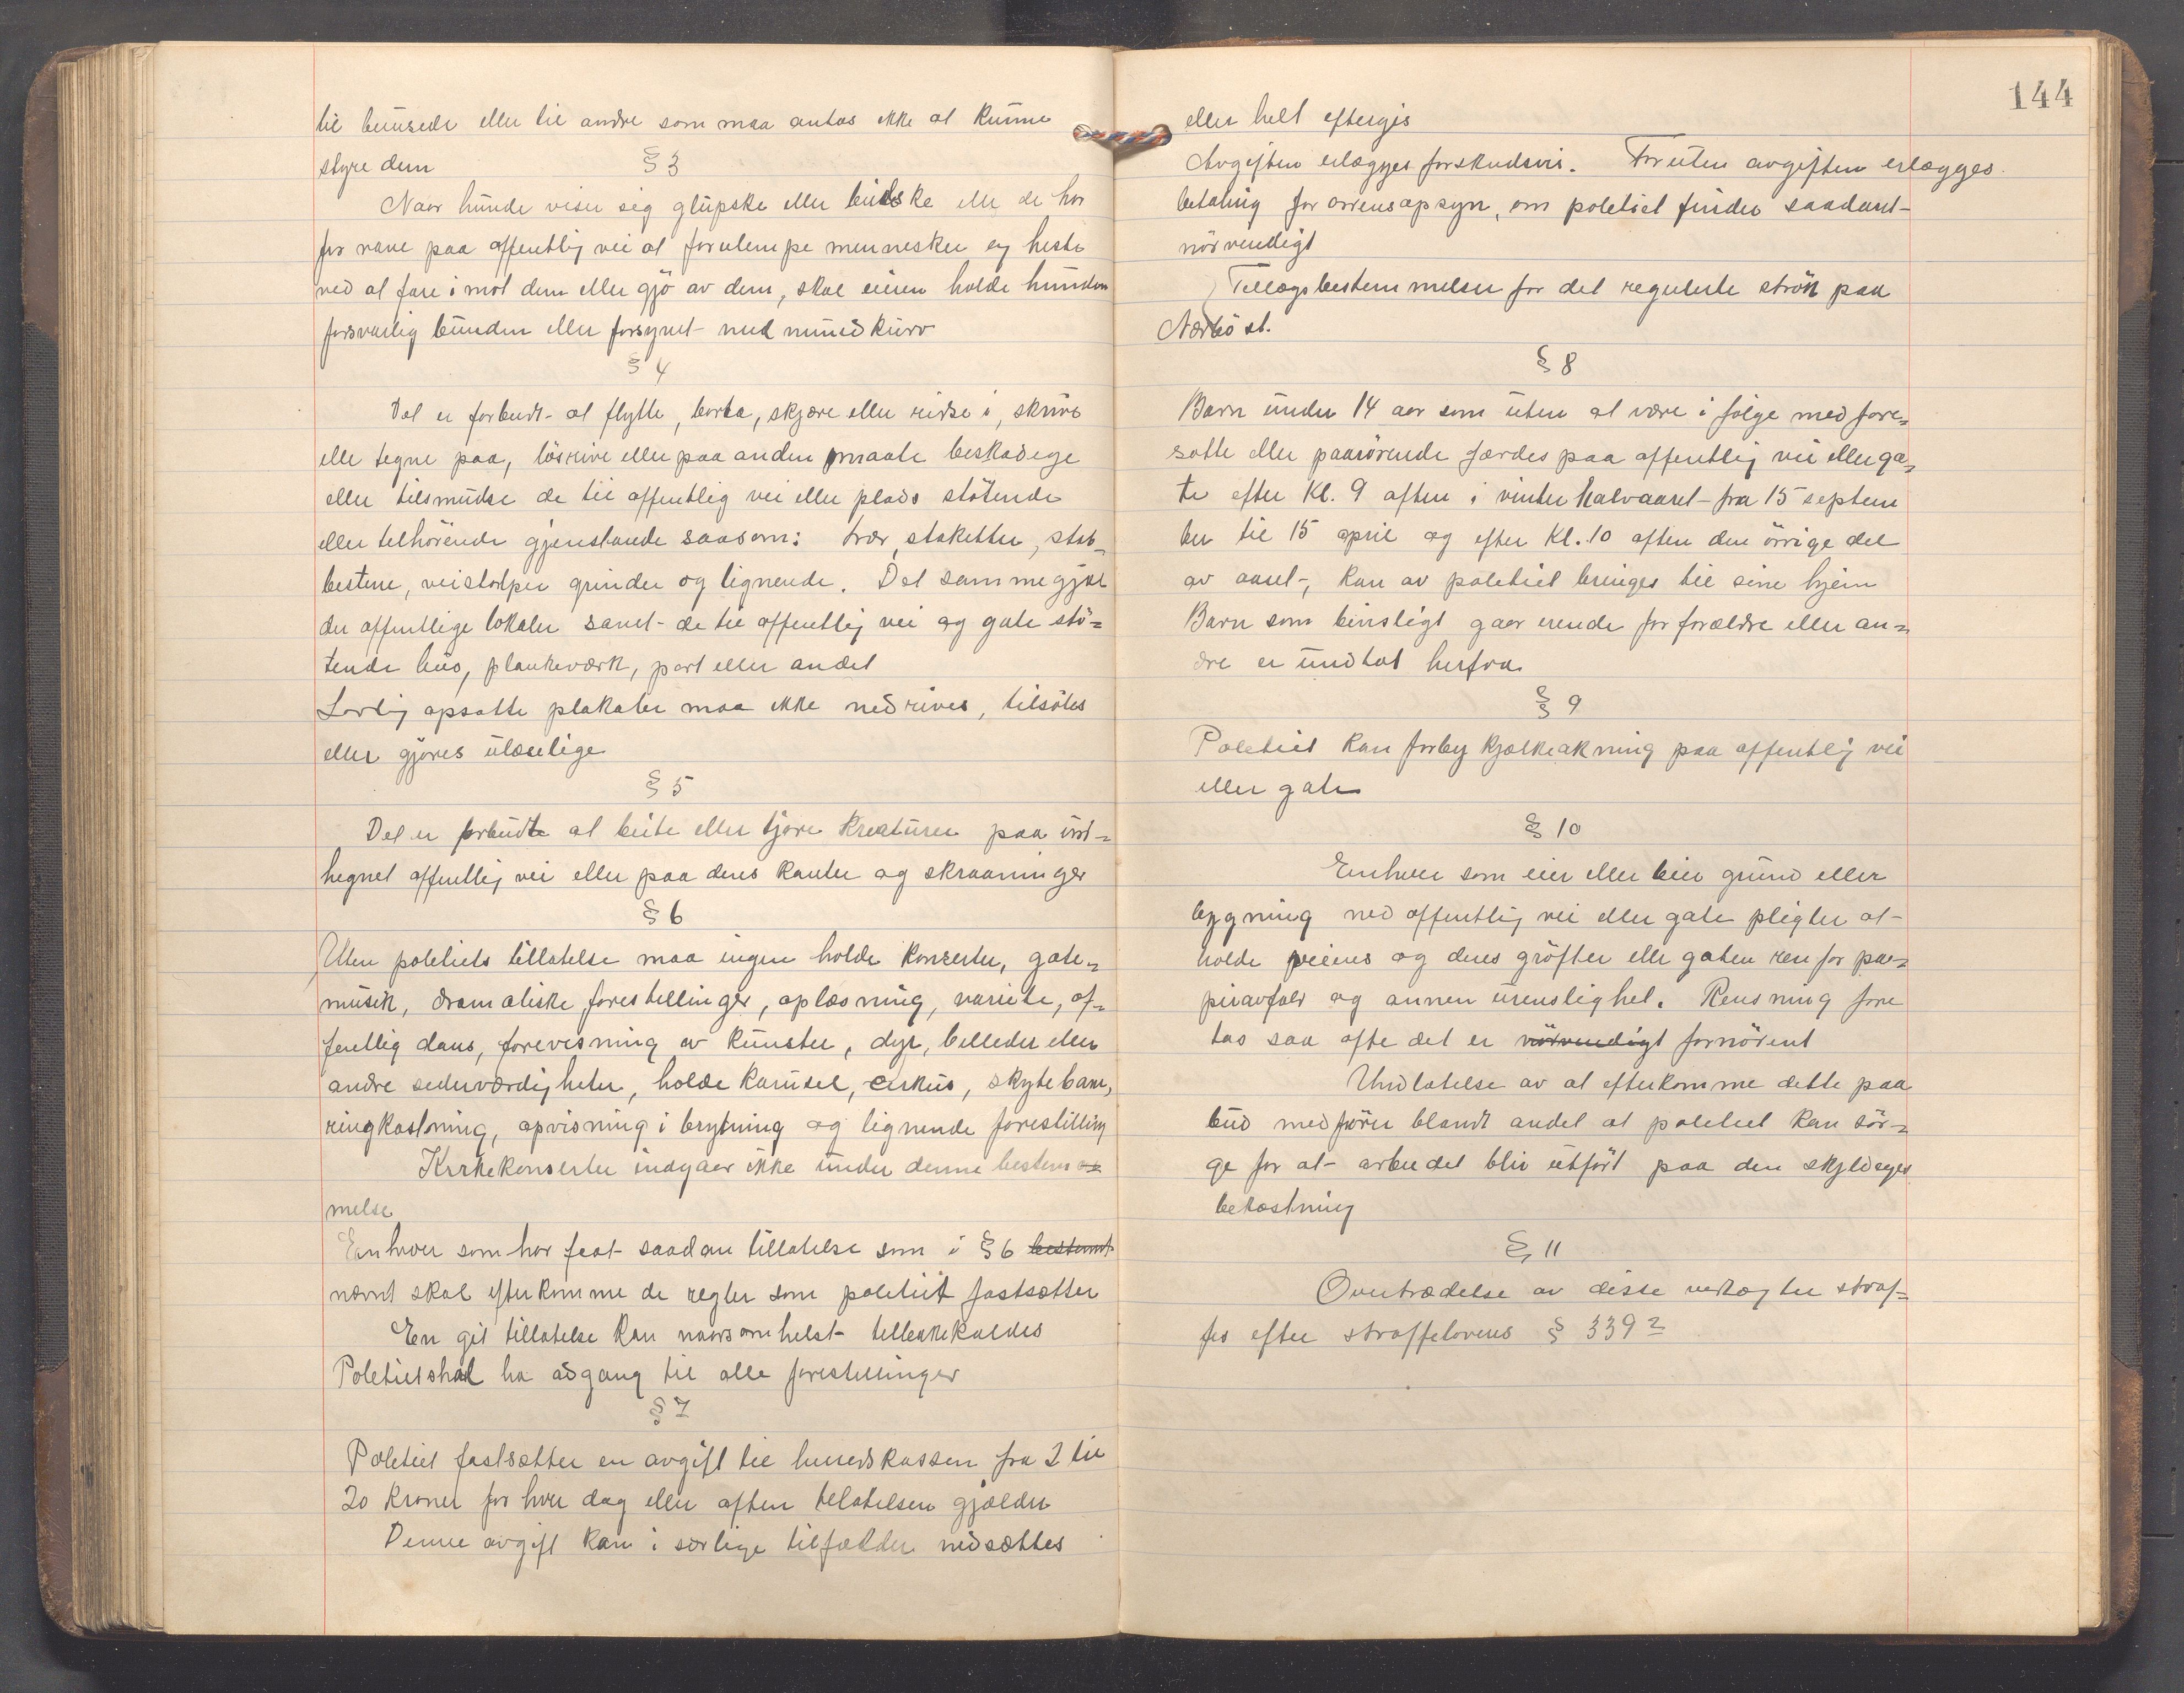 til berusede eller til andre som maa antas ikke at kunne
styre dem
§ 3
Naar hunde viser sig glupske eller bidske eller de har
for vane paa offentlig vei at forulempe mennesker og heste
ved at fare imot dem eller gjö av dem, skal eieren holde hunden
forsvarlig bunden eller forsynet med mundkurv
§ 4
Det er forbudt at flytte, borta, skjære eller ridse i, skrive
elle tegne paa, lösrive eller paa anden maate beskadige
eller tilsmudse de til offentlig vei eller plads stötende
eller tilhörende gjenstande saasom: trær, staketter, stab-
bestene, veistolper grinder og lignende. Det samme gjæl
der offentlige lokaler samt de til offentlig vei og gate stö=
tende hus, plankeværk, port eller andet
Lovlig opsatte plakater maa ikke nedrives, tilsöles
eller gjöres ulæselige
§ 5
Det er forbudt at beite eller tjore kreaturer paa ind=
hegnet offentlig vei eller paa deres kanter og skraaninger
§ 6
Uten politiets tillatelse maa ingen holde konserter, gate=
musik, dramatiske forestillinger, oplæsning, variete, of=
fentlig dans, forevisning av kunster, dyr, billeder eller
andre sederværdigheter, holde karusel, cirkus, skytebane,
ringkastning, opvisning i brytning og lignende forestilling
Kirkekonserter indgaar ikke under denne bestem=
melse
Enhver som har feat saadan tillatelse som i § 6 bestemt
nævnt skal efterkomme de regler som politiet fastsætter
En git tillatelse kan naarsomhelst tilbakekaldes
Politiet skal ha adgang til alle forestillinger
§ 7
Politiet fastsætter en avgift til herredskassen fra 2 til
20 kroner for hver dag eller aften tilatelsen gjælder
Denne avgift kan i særlige tilfælder nedsættes
144
eller helt eftergis
Avgiften erlægges forskudsvis. Foruten avgiften erlægges
betaling for orrensopsyn, om politiet finder saadant
nörvendigt
Tillægsbestemmelser for det regulerte strök paa
Nærbö st.
§ 8
Barn under 14 aar som uten at være i fölge med fore=
satte eller paarörende færdes paa offentlig vei eller ga=
te efter Kl. 9 aften i vinter halvaaret fra 15 septem
ber til 15 april og efter Kl. 10 aften den övrige del
av aaret, kan av politiet bringes til sine hjem
Barn som bevislig gaar erende for forældre eller an=
dre er undtat herfra
§ 9
Politiet kan forby kjælkeakning paa offentlig vei
eller gate
§ 10
Enhver som eier eller leier grund eller
bygning ved offentlig vei eller gate pligter at
holde veienes og deres gröfter eller gaten ren for pa=
piravfald og annen urenslighet. Rensning fore
tas saa ofte det er nörvendigt fornödent
Undlatelse av at efterkomme dette paa
bud medförer blandt andet at politiet kan sör=
ge for at arbeidet blir utfört paa den skyldiges
bekostning
§ 11
Overtrædelse av disse vedtægter straf=
fes efter straffelovens § 339 2